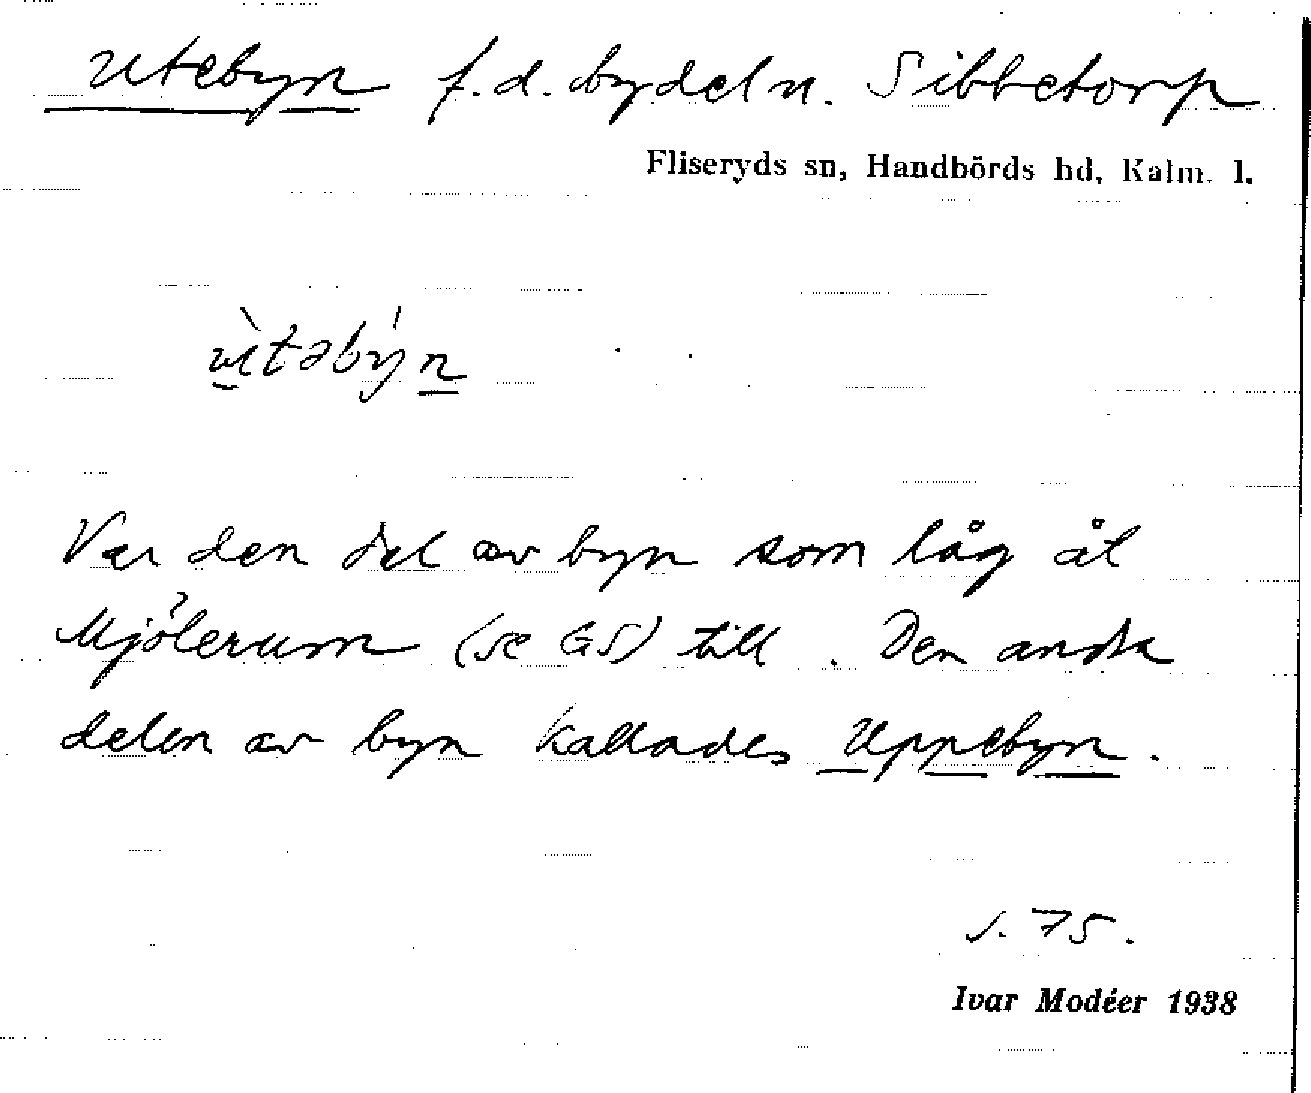 Utebyn f.d. bydel u. Sibbetorp
Fliseryds sn, Handbörds hd, Kalm. l.
ùtəbýn
Var den del av byn som låg åt
Mjölerum (se GS) till. Den andra
delen av byn kallades Uppebyn.
s. 75.
Ivar Modéer 1938